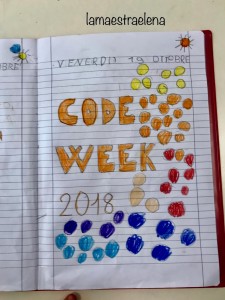 lamaestraelena
VENERDÌ 19 OTTOBRE
CODE
WEEK
2018